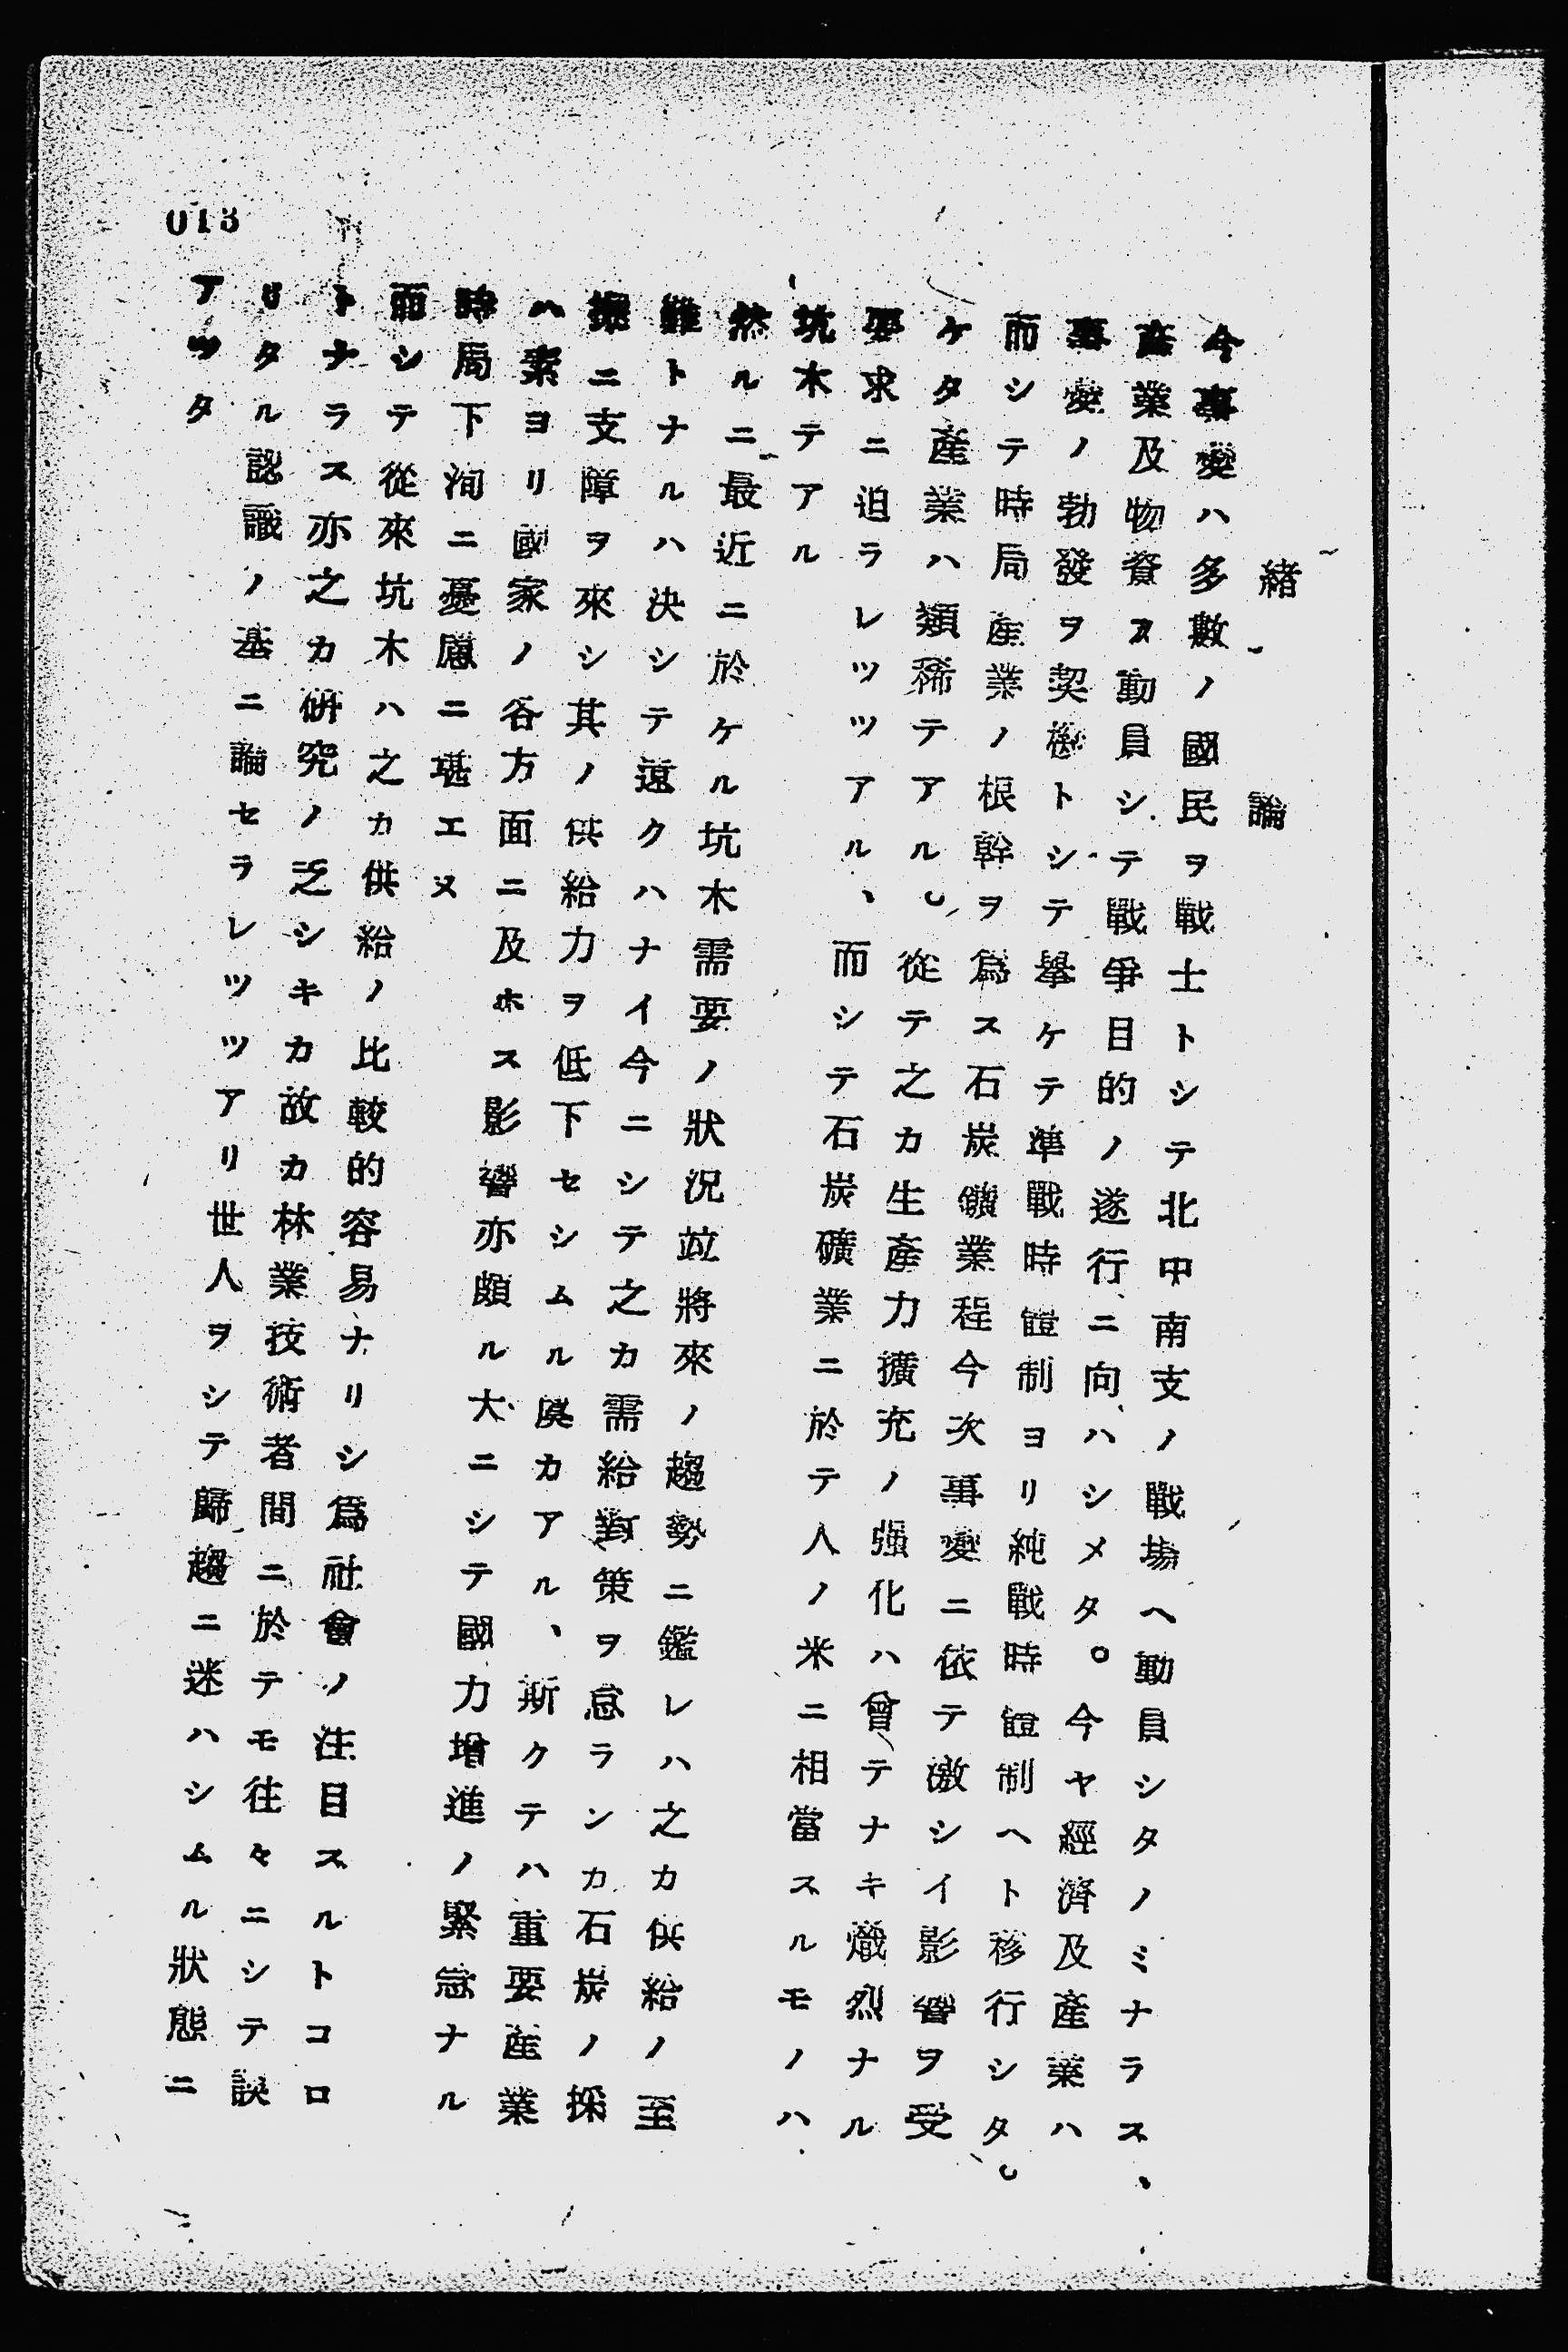 緒論
今事變ハ多數ノ國民ヲ戰士トシテ北中南支ノ戰場ヘ動員シタノミナラス、
產業及物資ヲ動員シテ戰爭目的ノ遂行ニ向ハシメタ。今ヤ經濟及產業ハ
事變ノ勃發ヲ契機トシテ擧ケテ準戰時體制ヨリ純戰時體制ヘト移行シタ。
而シテ時局產業ノ根幹ヲ爲ス石炭鑛業程今次事變ニ依テ激シイ影響ヲ受
ケタ產業ハ類稀テアル。從テ之カ生產力擴充ノ强化ハ曾テナキ熾烈ナル
要求ニ迫ラレツツアル、而シテ石炭礦業ニ於テ人ノ米ニ相當スルモノハ
坑木テアル
然ルニ最近ニ於ケル坑木需要ノ狀況竝將來ノ趨勢ニ鑑レハ之カ供給ノ至
難トナルハ決シテ遠クハナイ今ニシテ之カ需給對策ヲ怠ランカ石炭ノ採
掘ニ支障ヲ來シ其ノ供給力ヲ低下セシムル虞カアル、斯クテハ重要產業
ハ素ヨリ國家ノ各方面ニ及ホス影響亦頗ル大ニシテ國力增進ノ緊急ナル
時局下洵ニ憂慮ニ堪エヌ
而シテ從來坑木ハ之カ供給ノ比較的容易ナリシ爲社會ノ注目スルトコロ
トナラス亦之カ硏究ノ乏シキカ故カ林業技術者間ニ於テモ往々ニシテ誤
タル認識ノ基ニ論セラレツツアリ世人ヲシテ歸趨ニ迷ハシムル狀態ニ
アツタ
013